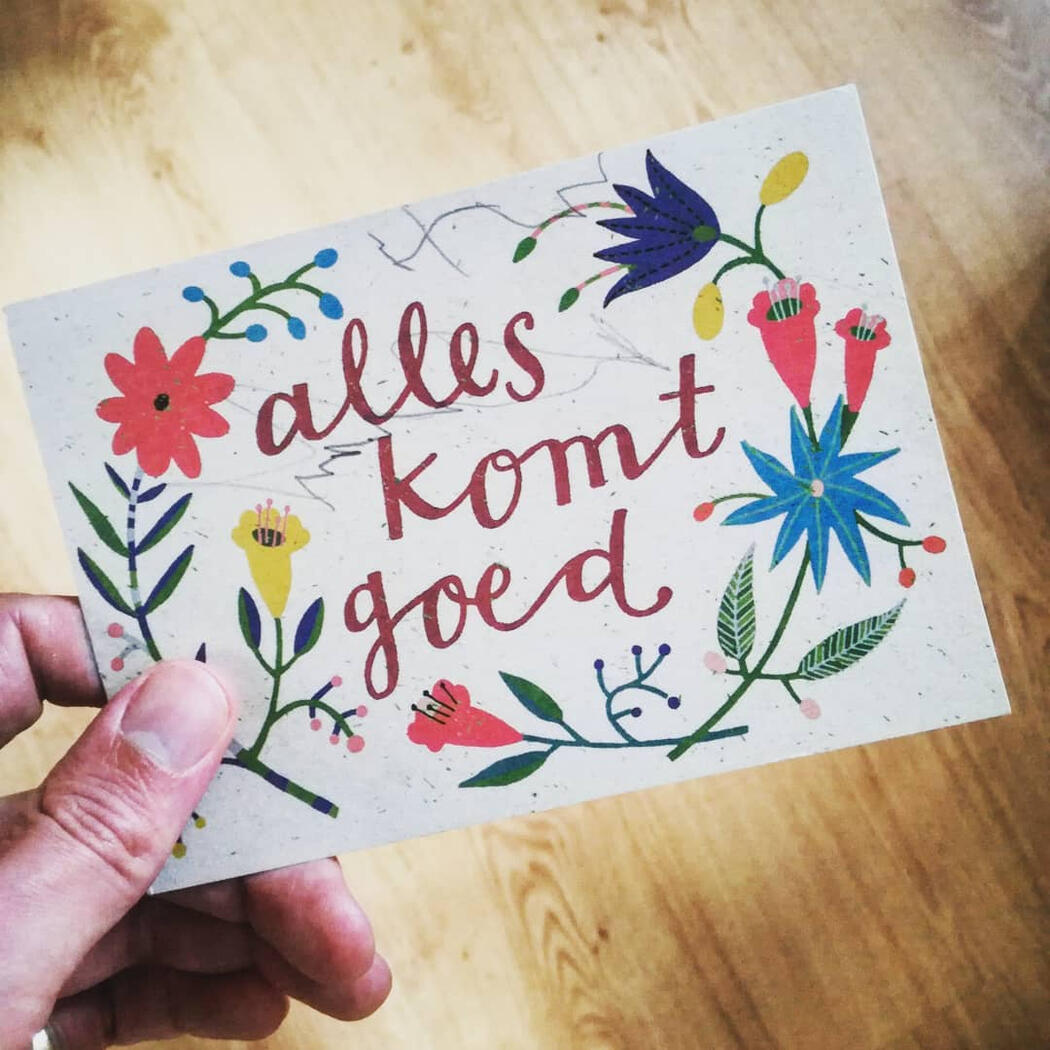 alles
komt
goed